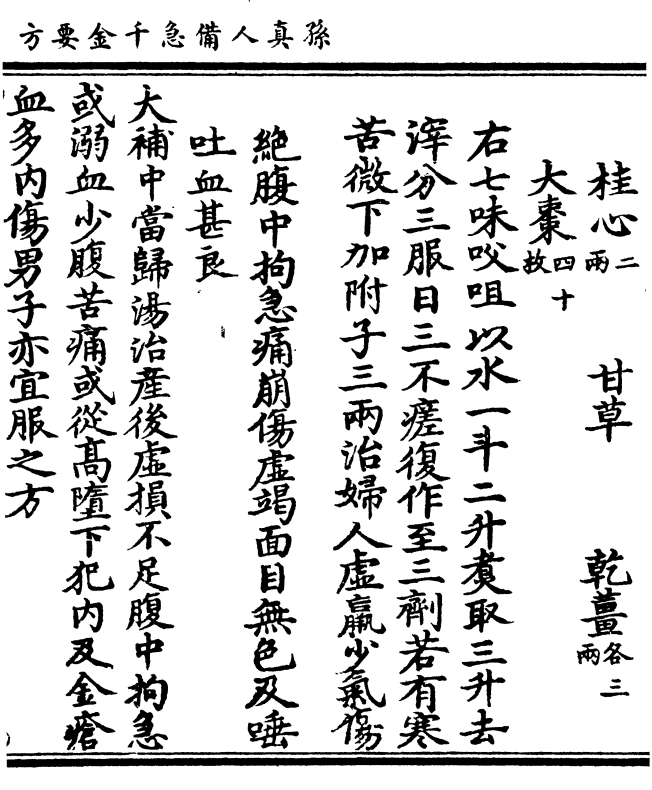 孫真人備急千金要方
桂心二兩 甘草 乾薑各三兩
大棗四十枚
右七味㕮咀以水一斗二升煑取三升去
滓分三服日三不瘥復作至三劑若有寒
苦微下加附子三兩治婦人虛羸少氣傷
絕腹中拘急痛崩傷虛竭面目無色及唾
吐血甚良
大補中當歸湯治產後虛損不足腹中拘急
或溺血少腹苦痛或從高墮下犯內及金瘡
血多內傷男子亦宜服之方